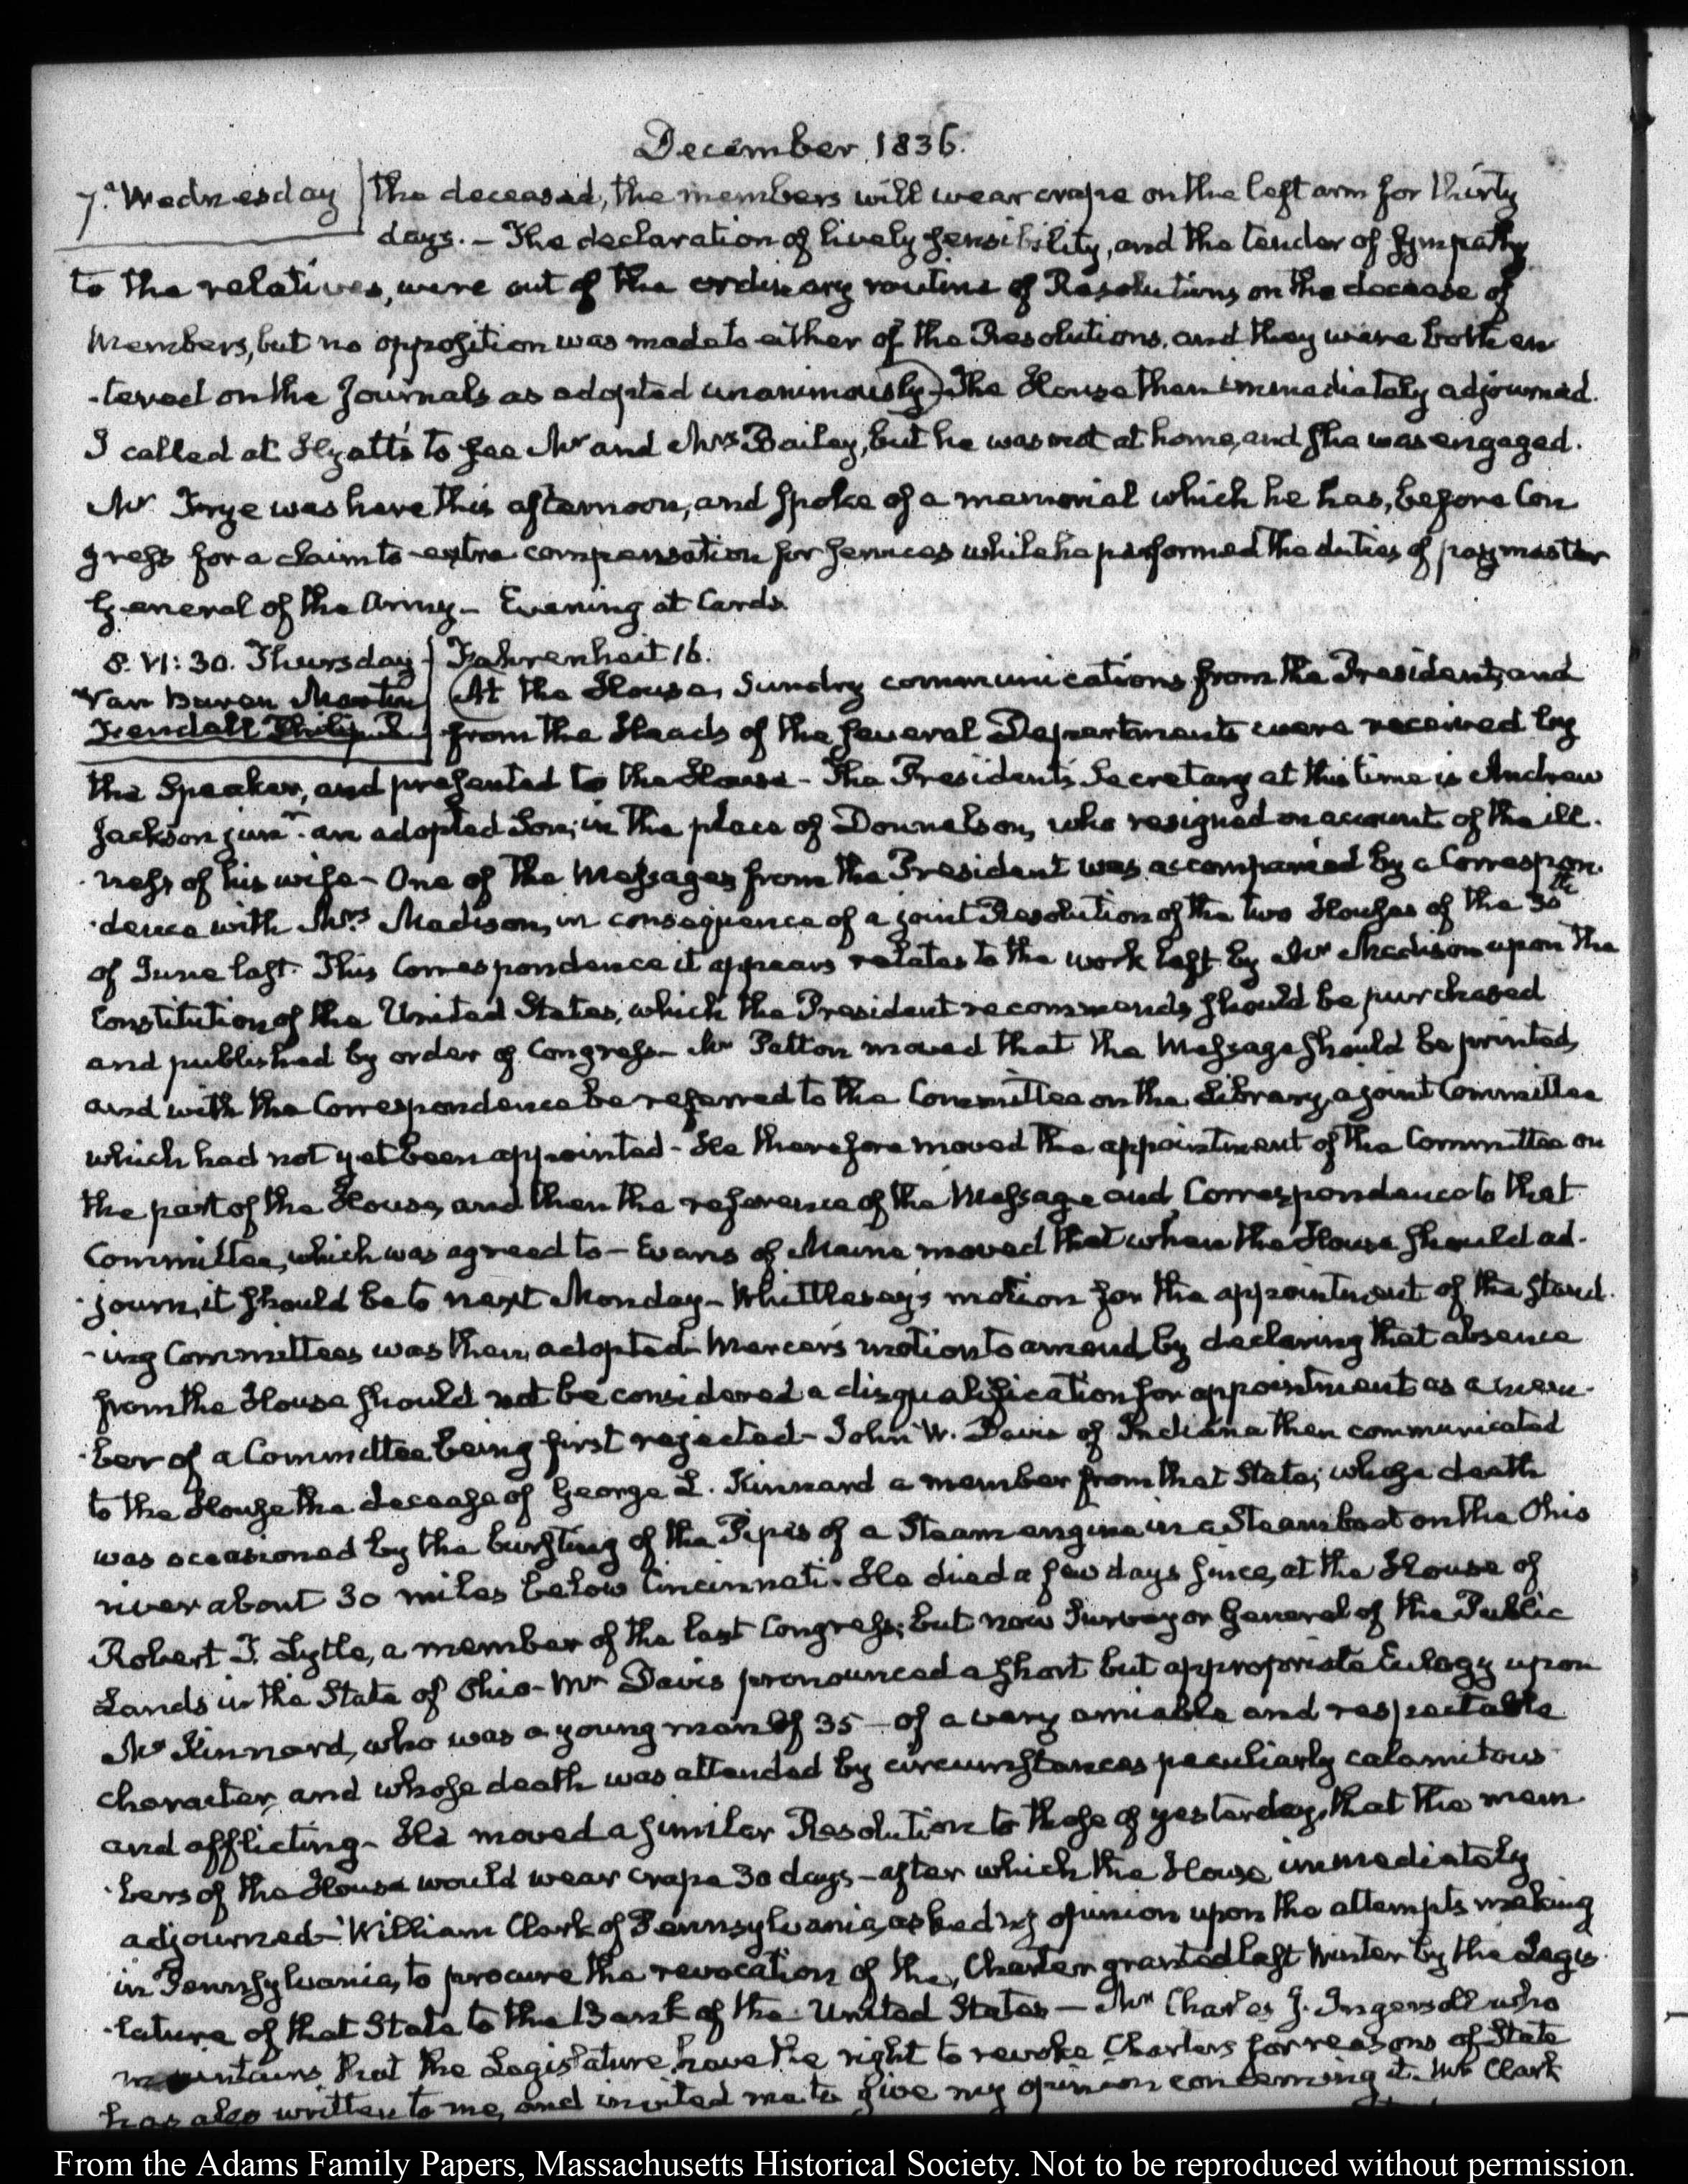 December 1836.
7.a Wednesday the deceased, the members will wear crape on the left arm for thirty
days. – The declaration of lively sensibility, and the tender of sympathy
to the relatives, were out of the ordinary routine of Resolutions on the decease of
Members, but no opposition was made to either of the Resolutions, and they were both en
-tered on the Journals as adopted unanimously – The House then immediately adjourned.
I called at Hyatt's to see Mr and Mrs Bailey, but he was not at home, and she was engaged.
Mr Frye was here this afternoon, and spoke of a memorial which he has, before Con
gress for a claim to extra compensation for services while he performed the duties of paymaster
General of the Army – Evening at Cards.
8. VI:30. Thursday Fahrenheit 16.
Van Buren Martin At the House, Sundry communications from the President, and
Fendall Philip R from the Heads of the several Departments were received by
the Speaker, and presented to the House – The President's Secretary at this time is Andrew
Jackson junr. an adopted Son, in the place of Donnelson, who resigned on account of the ill-
-ness of his wife – One of the Messages from the President was accompanied by a Correspon-
-dence with Mrs Madison, in consequence of a joint Resolution of the two Houses of the 30th
of June last. This Correspondence it appears relates to the work left by Mr Madison upon the
Constitution of the United States, which the President recommends should be purchased
and published by order of Congress – Mr Patton moved that the Message should be printed,
and with the Correspondence be referred to the Committee on the Library, a joint Committee
which had not yet been appointed – He therefore moved the appointment of the Committee on
the part of the House, and then the reference of the Message and Correspondence to that
Committee, which was agreed to – Evans of Maine moved that when the House should ad-
-journ, it should be to next Monday – Whittlesey's motion for the appointment of the stand-
-ing Committees was then adopted – Mercer's motion to amend, by declaring that absence
from the House should not be considered a disqualification for appointment as a mem-
-ber of a Committee being first rejected – John W. Davis of Indiana then communicated
to the House the decease of George L. Kinnard a member from that State; whose death
was occasioned by the bursting of the Pipes of a Steam engine in a Steamboat on the Ohio
river about 30 miles below Cincinnati. He died a few days since, at the House of
Robert T. Lytle, a member of the last Congress; but now Surveyor General of the Public
Lands in the State of Ohio – Mr Davis pronounced a short but appropriate Eulogy upon
Mr Kinnard, who was a young man of 35 – of a very amiable and respectable
character, and whose death was attended by circumstances peculiarly calamitous
and afflicting – He moved a similar Resolution to those of yesterday, that the mem-
-bers of the House would wear crape 30 days – after which the House immediately
adjourned – William Clark of Pennsylvania, asked my opinion upon the attempts making
in Pennsylvania, to procure the revocation of the, Charter granted last Winter by the Legis-
-lature of that State to the Bank of the United States – Mr Charles J. Ingersoll who
maintains that the Legislature have the right to revoke Charters for reasons of State
has also written to me, and invited me to give my opinion concerning it. Mr Clark
From the Adams Family Papers, Massachusetts Historical Society. Not to be reproduced without permission.